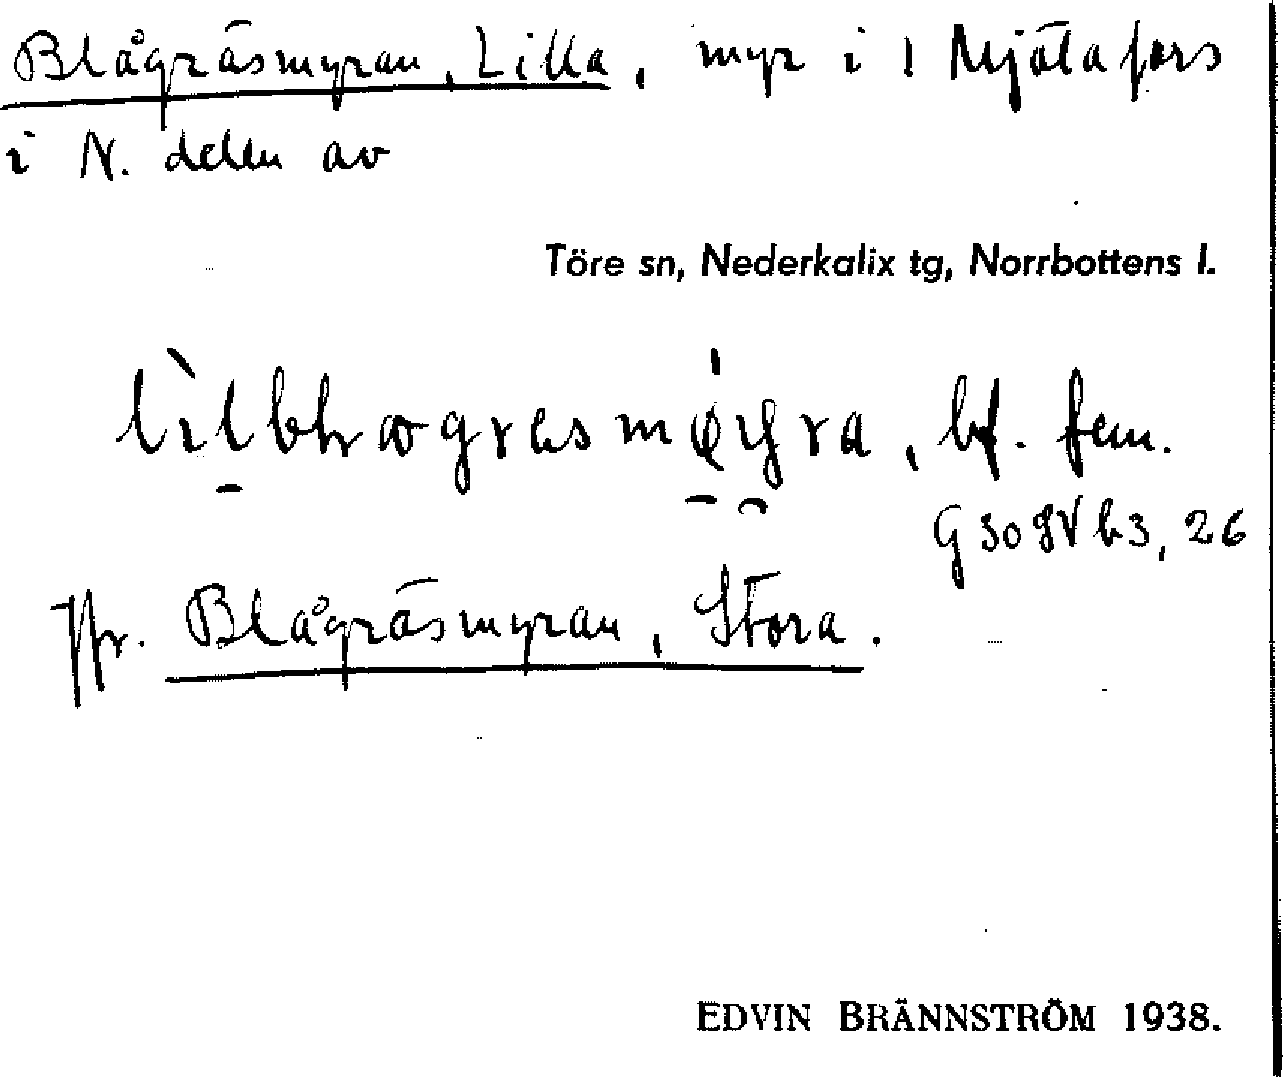 Blågräsmyran, Lilla, myr i 1 Mjölafors
i N. delen av
Töre sn, Nederkalix tg, Norrbottens l.
bf. fem.
26
Jfr. Blågräsmyran, Stora.
EDVIN BRÄNNSTRÖM 1938.